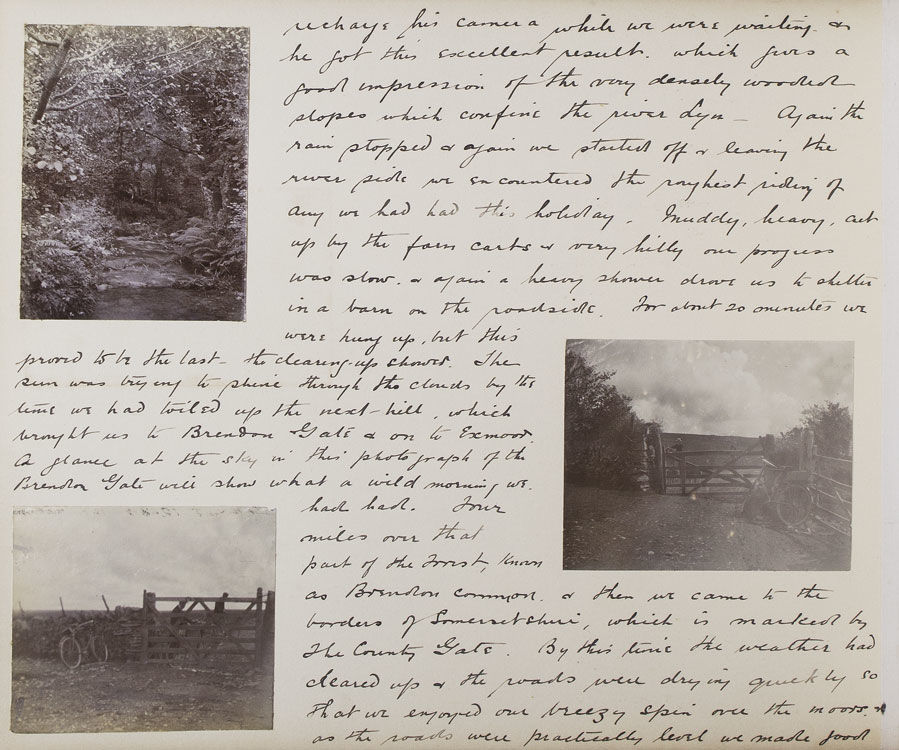 recharge his camera while we were waiting. &
he got this excellent result. which gives a
good impression of the very densely wooded
slopes which confine the river Lyn — Again the
rain stopped & again we started off & leaving the
river side we encountered the roughest riding of
any we had had this holiday. Muddy, heavy, cut
up by the farm carts & very hilly our progress
was slow. & again a heavy shower drove us to shelter
in a barn on the roadside. For about 20 minutes we
were hung up, but this
proved to be the last - the clearing-up shower. The
sun was trying to shine through the clouds by the
time we had toiled up the next hill, which
brought us to Brendon Gate & on to Exmoor.
A glance at the sky in this photograph of the
Brendon Gate will show what a wild morning we
had had. Four
miles over that
part of the Forest, known
as Brendon common. & then we came to the
borders of Somersetshire, which is marked by
the County Gate. By this time the weather had
cleared up & the roads were drying quickly so
that we enjoyed our breezy spin over the moors. &
as the roads were practically level we made good